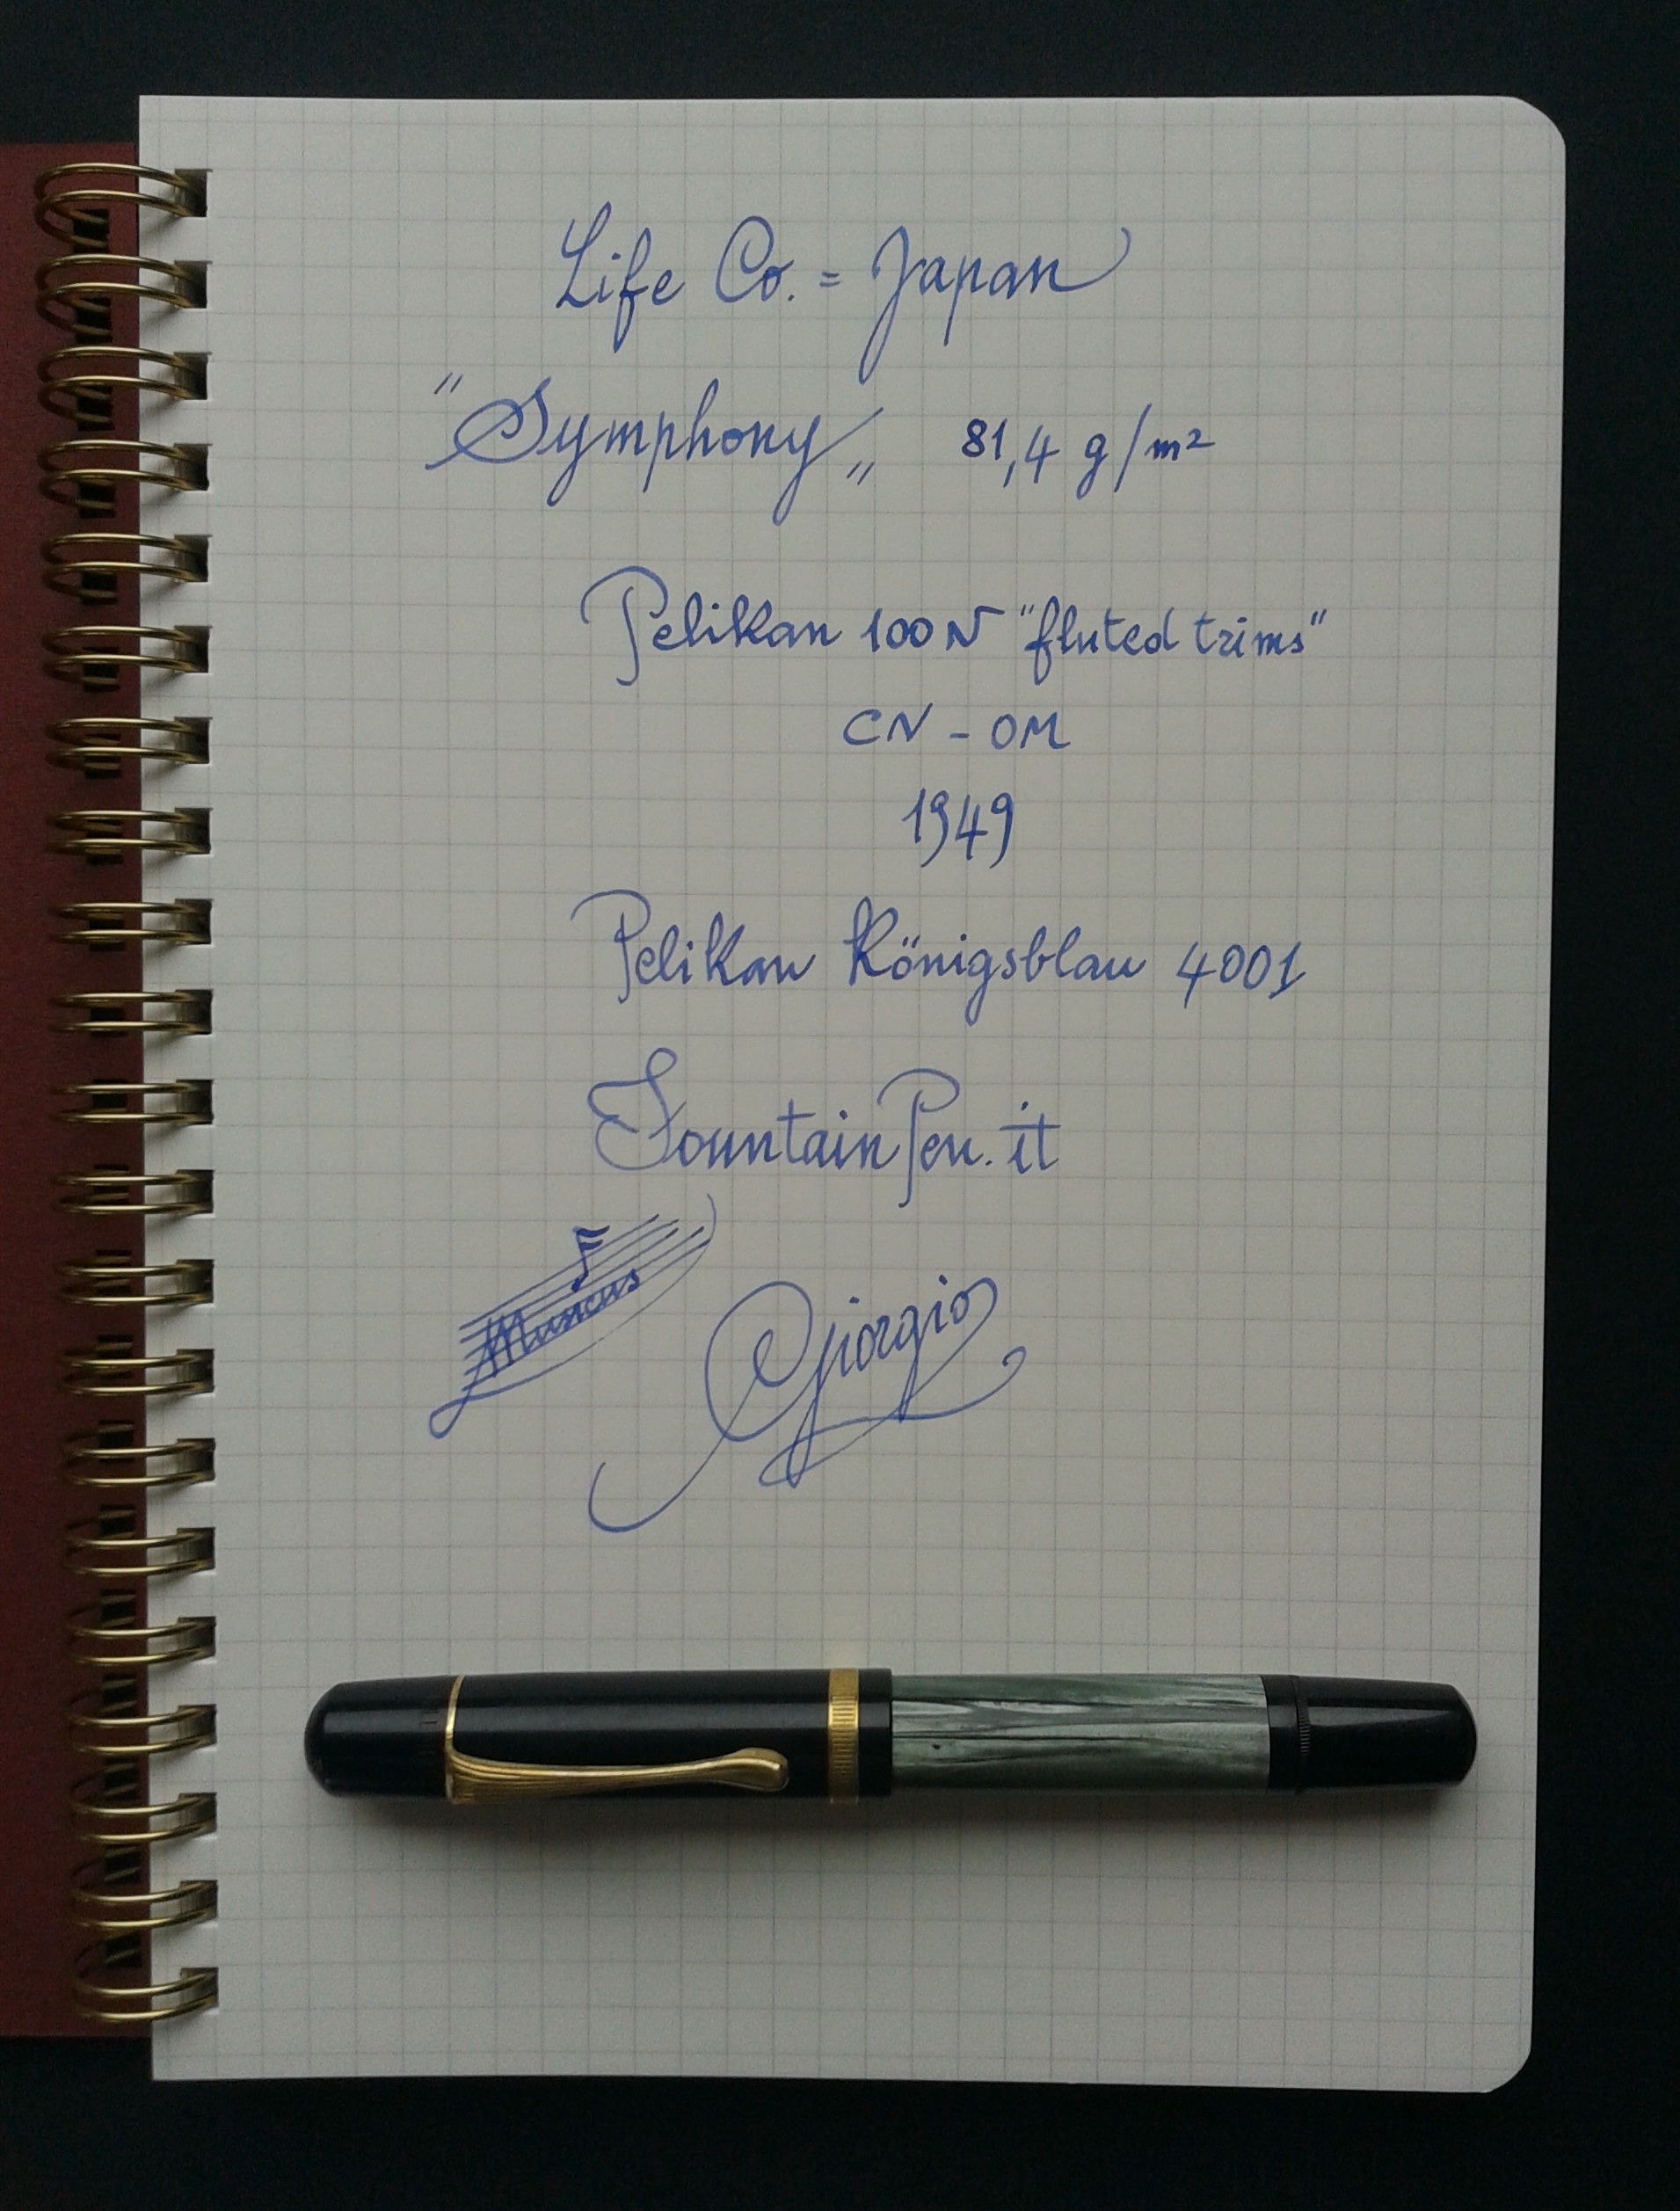 Life Co. = Japan
"Symphony„ 81,4 g/m²
Pelikan 100N "fluted trims"
CN - OM
1949
Pelikan Königsblau 4001
FountainPen.it
Musicus
Giorgio